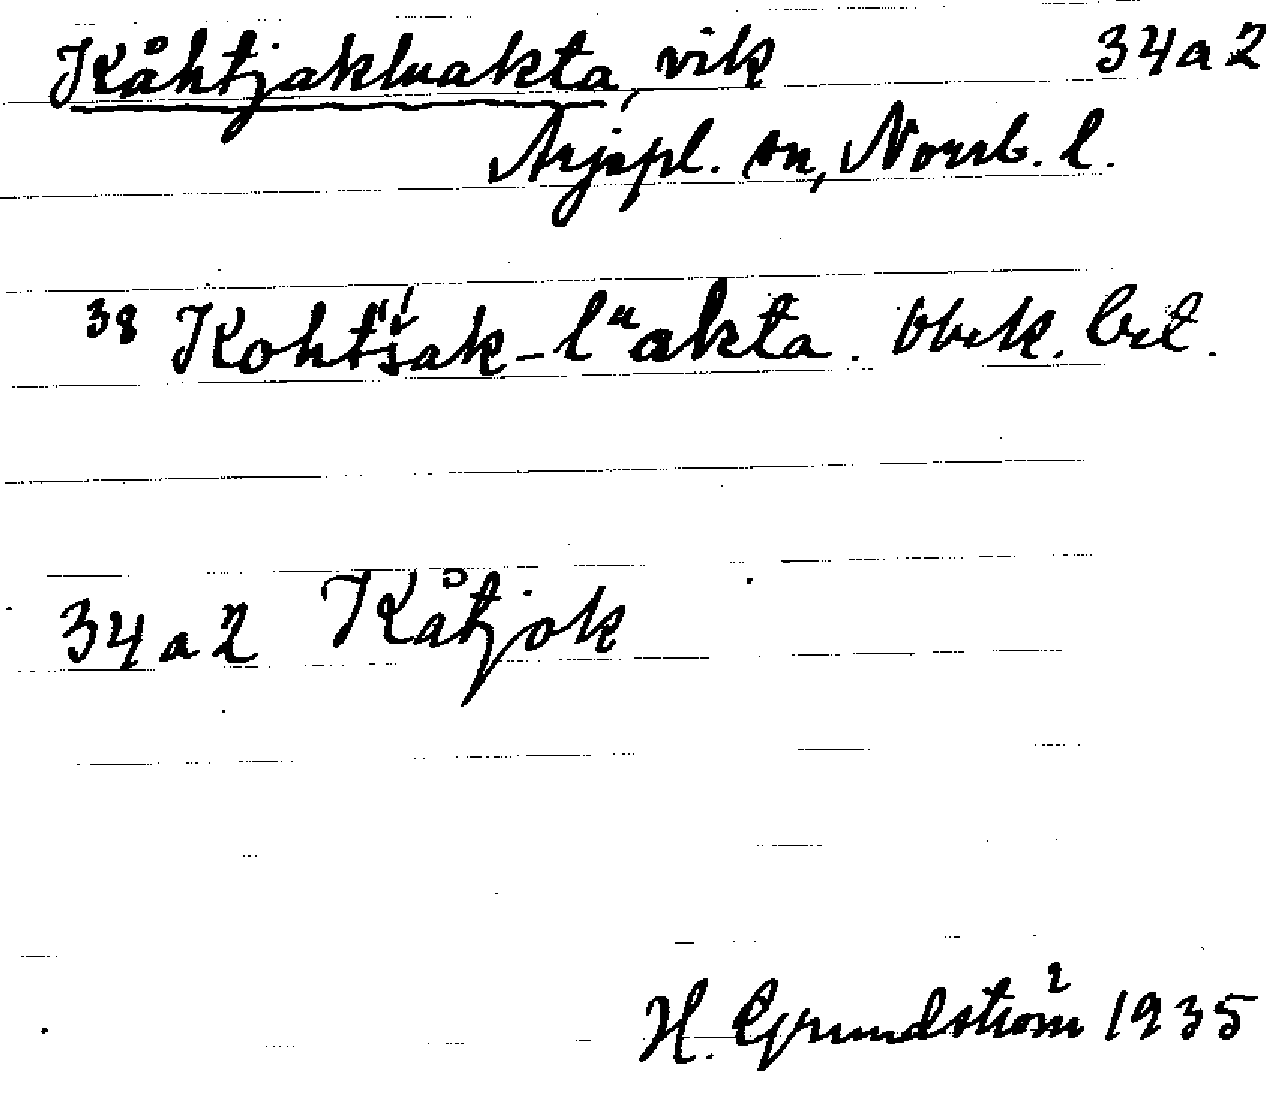 Kåhtjakluakta, vik 34a2
Arjepl. sn, Norrb. l.
38 Kohtśak-lᵘakta. obek. bet.
34a2 Kåtjok
H. Grundström 1935